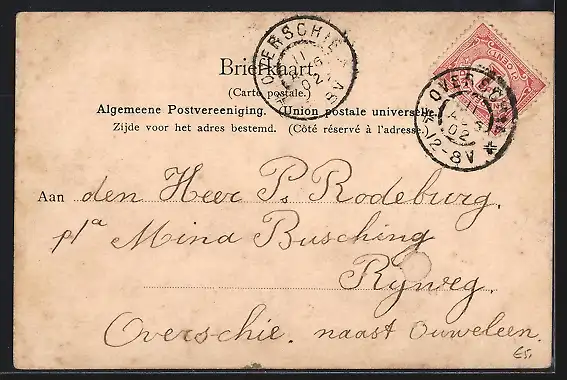 OVERSCHIE
11 AUG 02
8V
Briefkaart
(Carte postale.)
Algemeene Postvereeniging. (Union postale universelle.)
Zijde voor het adres bestemd. (Côté réservé à l'adresse.)
12-8V
Aan den Heer P. Rodeburg.
p/a Mina Busching
Rijweg.
Overschie. naast Ouweleen.